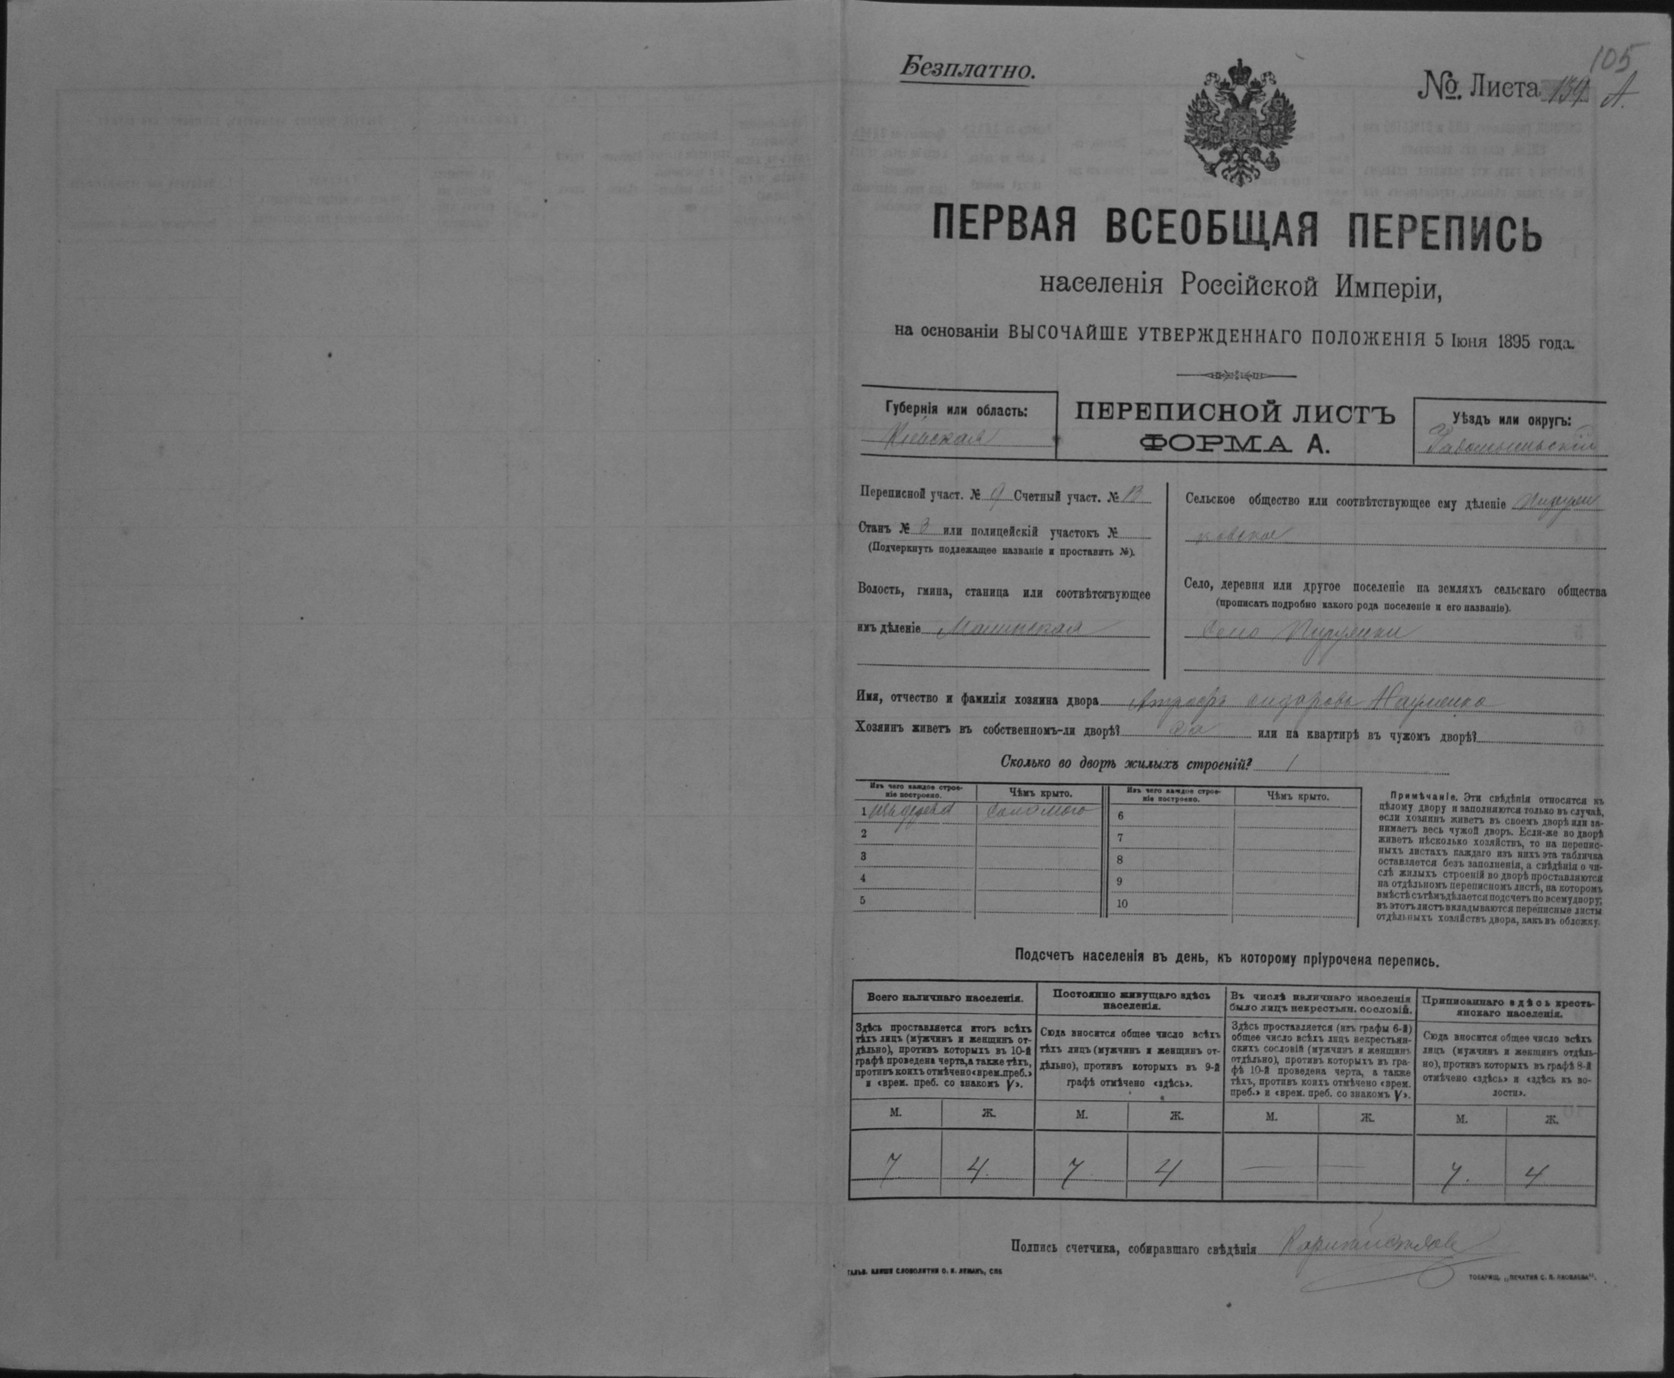 105
Безплатно.
№. Листа 139 А.
ПЕРВАЯ ВСЕОБЩАЯ ПЕРЕПИСЬ
населенія Россійской Имперіи,
на основаніи ВЫСОЧАЙШЕ УТВЕРЖДЕННАГО ПОЛОЖЕНІЯ 5 Іюня 1895 года.
Губернія или область:
Кіевская
ПЕРЕПИСНОЙ ЛИСТЪ
ФОРМА А.
Уѣздъ или округъ:
Переписной участ. № 9 Счетный участ. №
Станъ № 3 или полицейскій участокъ №
(Подчеркнуть подлежащее названіе и проставить №).
Волость, гмина, станица или соотвѣтствующее
имъ дѣленіе
Сельское общество или соотвѣтствующее ему дѣленіе
Село, деревня или другое поселеніе на земляхъ сельскаго общества
(прописать подробно какого рода поселеніе и его названіе).
Село
Имя, отчество и фамилія хозяина двора Науменко
Хозяинъ живетъ въ собственномъ-ли дворѣ? да или на квартирѣ въ чужомъ дворѣ?
Сколько во дворѣ жилыхъ строеній? 1
Изъ чего каждое строе-
ніе построено.
Чѣмъ крыто.
Изъ чего каждое строе-
ніе построено.
Чѣмъ крыто.
1 изъ дерева соломою
2
3
4
5
6
7
8
9
10
Примѣчаніе. Эти свѣдѣнія относятся къ
цѣлому двору и заполняются только въ случаѣ,
если хозяинъ живетъ въ своемъ дворѣ или за-
нимаетъ весь чужой дворъ. Если-же во дворѣ
живетъ нѣсколько хозяйствъ, то на перепис-
ныхъ листахъ каждаго изъ нихъ эта табличка
оставляется безъ заполненія, а свѣдѣнія о чи-
слѣ жилыхъ строеній во дворѣ проставляются
на отдѣльномъ переписномъ листѣ, на которомъ
вмѣстѣ съ тѣмъ дѣлается подсчетъ по всему двору;
въ этотъ листъ вкладываются переписные листы
отдѣльныхъ хозяйствъ двора, какъ въ обложку.
Подсчетъ населенія въ день, къ которому пріурочена перепись.
Всего наличнаго населенія.
Здѣсь проставляется итогъ всѣхъ
тѣхъ лицъ (мужчинъ и женщинъ от-
дѣльно), противъ которыхъ въ 10-й
графѣ проведена черта, а также тѣхъ,
противъ коихъ отмѣчено «врем. преб.»
и «врем. преб. со знакомъ V».
Постоянно живущаго здѣсь
населенія.
Сюда вносится общее число всѣхъ
тѣхъ лицъ (мужчинъ и женщинъ от-
дѣльно), противъ которыхъ въ 9-й
графѣ отмѣчено «здѣсь».
Въ числѣ наличнаго населенія
было лицъ некрестьян. сословій.
Здѣсь проставляется (изъ графы 6-й)
общее число всѣхъ лицъ некрестьян-
скихъ сословій (мужчинъ и женщинъ
отдѣльно), противъ которыхъ въ гра-
фѣ 10-й проведена черта, а также
тѣхъ, противъ коихъ отмѣчено «врем.
преб.» и «врем. преб. со знакомъ V».
Приписаннаго здѣсь кресть-
янскаго населенія.
Сюда вносится общее число всѣхъ
лицъ (мужчинъ и женщинъ отдѣль-
но), противъ которыхъ въ графѣ 8-й
отмѣчено «здѣсь» и «здѣсь въ во-
лости».
М. Ж. М. Ж. М. Ж. М. Ж.
7 4 7 4 — — 7 4
Подпись счетчика, собиравшаго свѣдѣнія
ГАЛЬВ. КЛИШЕ СЛОВОЛИТНИ О. И. ЛЕМАНЪ, СПБ.
ТОВАРИЩ. „ПЕЧАТНЯ С. П. ЯКОВЛЕВА".